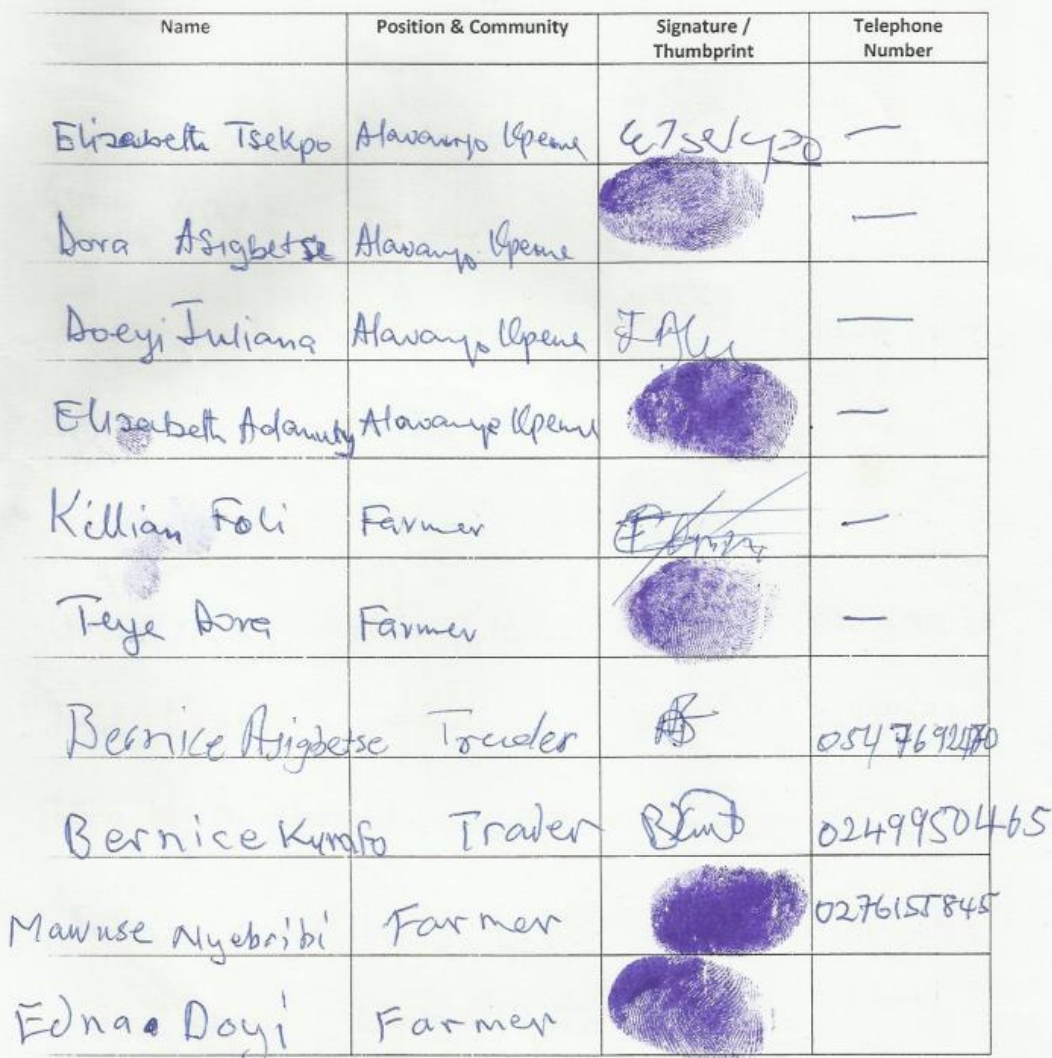 Name Position & Community Signature / Thumbprint Telephone Number
Elizabeth Tsekpo Alavanyo Kpeme ETsekpo —
Dora Asigbetse Alavanyo Kpeme —
Doeyi Juliana Alavanyo Kpeme —
Elizabeth Alavanyo Kpeme —
Killian Foli Farmer —
Teye Dora Farmer —
Bernice Asigbetse Trader
Bernice Trader 0249950465
Mawuse Nyebribi Farmer 0276155845
Edna Doyi Farmer